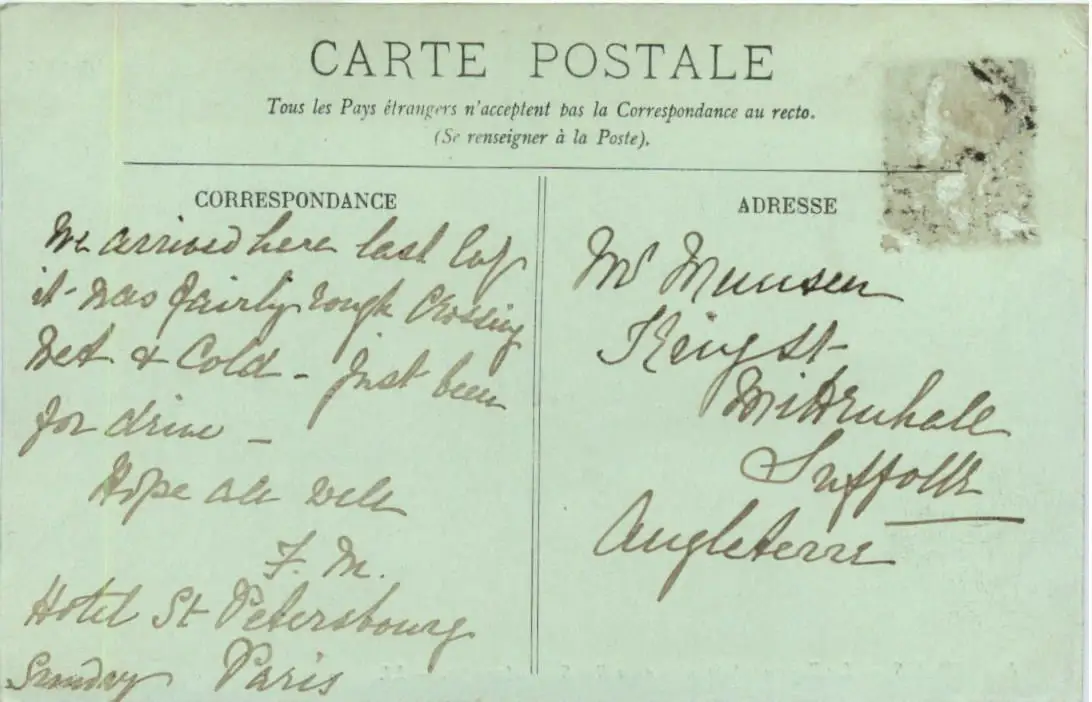 CARTE POSTALE
Tous les Pays étrangers n'acceptent pas la Correspondance au recto.
(Se renseigner à la Poste).
CORRESPONDANCE
We arrived here last
it was fairly rough Crossing
Wet & Cold - Just been
for drive -
Hope all well
F. M.
Hotel St Petersbourg
Sunday Paris
ADRESSE
Mr Munsen
King St
Mildenhall
Suffolk
Angleterre